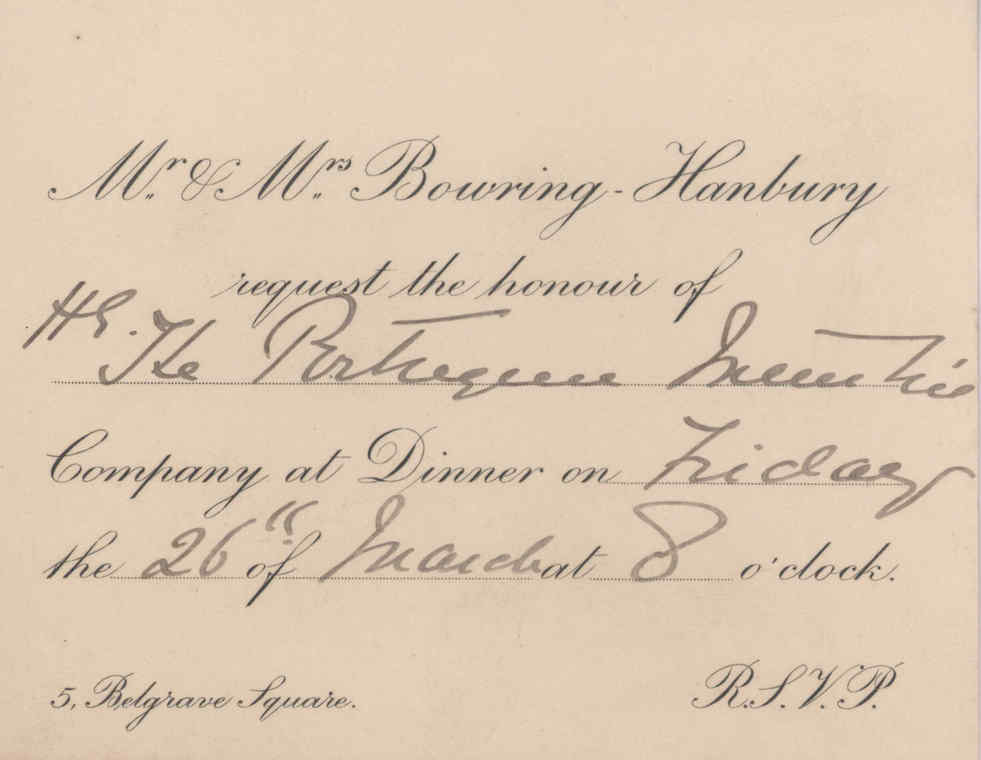 Mr. & Mrs. Bowring-Hanbury
request the honour of
H.E. The Portuguese Minister's
Company at Dinner on Friday
the 26th of March at 8 o'clock.
5, Belgrave Square. R.S.V.P.